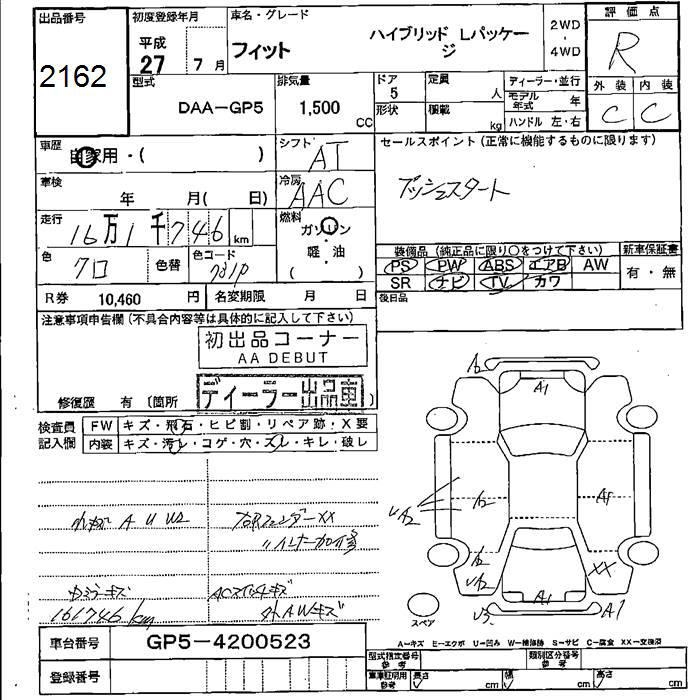 出品番号
2162
初度登録年月
平成
27 7月
車名・グレード
フィット
ハイブリッド Lパッケー
ジ
2WD
・
4WD
評価点
R
外装 内装
C C
型式
DAA-GP5
排気量
1,500
CC
ドア
5
形状
定員
人
積載
kg
ディーラー・並行
モデル
年式 年
ハンドル 左・右
車歴
自家用・( )
シフト
AT
セールスポイント(正常に機能するものに限ります)
プッシュスタート
車検
年 月( 日)
冷房
AAC
走行
16万1千746 km
燃料
ガソリン
・
軽油
( )
色
クロ
色替
色コード
731P
装備品(純正品に限り○をつけて下さい)
PS PW ABS エアB AW
SR ナビ TV カワ
新車保証書
有・無
R券 10,460 円
名変期限 月 日
後日品
注意事項申告欄(不具合内容等は具体的に記入して下さい)
初出品コーナー
AA DEBUT
修復歴 有(箇所 )
ディーラー出品車
検査員
記入欄
FW キズ・飛石・ヒビ割・リペア跡・X要
内装 キズ・汚レ・コゲ・穴・スレ・キレ・破レ
A U U2
右Rフェンダー XX
〃インナー加修
キズ
キズ
161746 km
外AWキズ
A2
A1
UA2
A2
A1
A2
UA2
XX
A1
U3
A1
スペア
A-キズ E-エクボ U-凹み W-補修跡 S-サビ C-腐食 XX-交換済
車台番号 GP5-4200523
登録番号
型式指定番号
参考
類別区分番号
参考
車庫証明用
参考
長さ cm 幅 cm 高さ cm